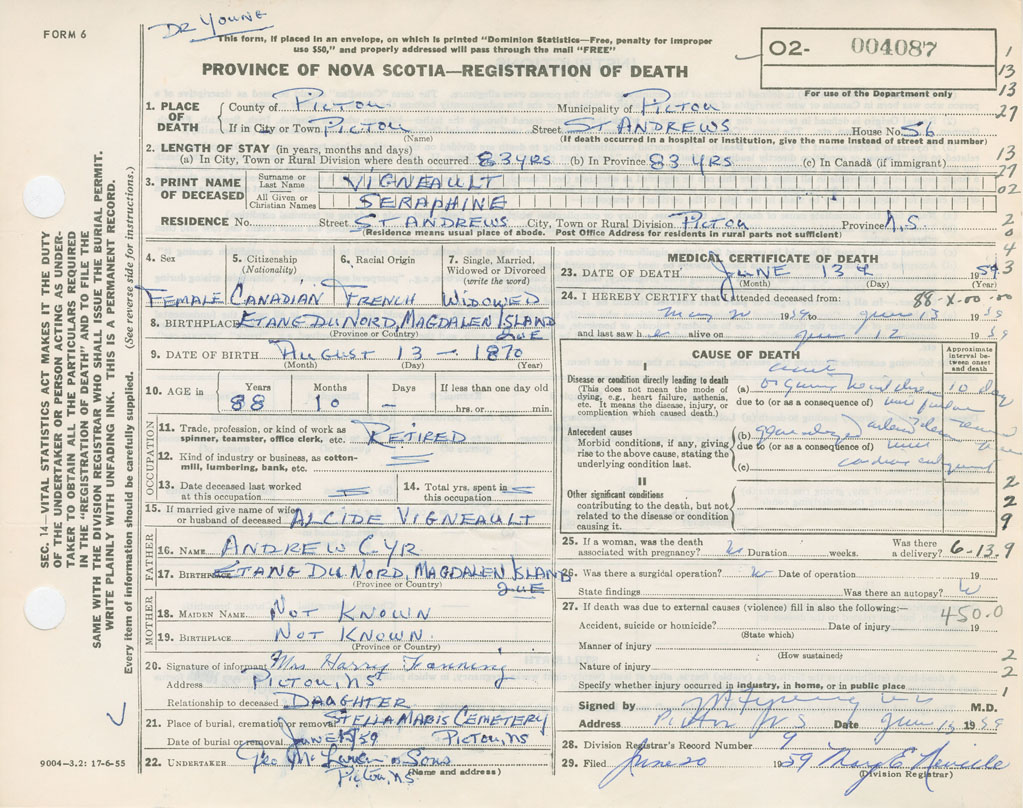 DR YOUNG
FORM 6
This form, if placed in an envelope, on which is printed "Dominion Statistics—Free, penalty for improper
use $50," and properly addressed will pass through the mail "FREE"
O2- 004087
For use of the Department only
PROVINCE OF NOVA SCOTIA—REGISTRATION OF DEATH
1
13
13
27
1. PLACE OF DEATH
County of PICTOU Municipality of PICTOU
If in City or Town PICTOU Street ST ANDREWS House No. 56
(Name) (If death occurred in a hospital or institution, give the name instead of street and number)
2. LENGTH OF STAY (in years, months and days)
(a) In City, Town or Rural Division where death occurred 83 YRS (b) In Province 83 YRS (c) In Canada (if immigrant)
13
27
02
3. PRINT NAME OF DECEASED
Surname or Last Name VIGNEAULT
All Given or Christian Names SERAPHINE
RESIDENCE No. Street ST ANDREWS City, Town or Rural Division PICTOU Province N.S.
(Residence means usual place of abode. Post Office Address for residents in rural parts not sufficient)
SEC. 14—VITAL STATISTICS ACT MAKES IT THE DUTY
OF THE UNDERTAKER OR PERSON ACTING AS UNDER-
TAKER TO OBTAIN ALL THE PARTICULARS REQUIRED
IN THE "REGISTRATION OF DEATH" AND TO FILE THE
SAME WITH THE DIVISION REGISTRAR WHO SHALL ISSUE THE BURIAL PERMIT.
WRITE PLAINLY WITH UNFADING INK. THIS IS A PERMANENT RECORD.
Every item of information should be carefully supplied. (See reverse side for instructions.)
4. Sex 5. Citizenship (Nationality) 6. Racial Origin 7. Single, Married, Widowed or Divorced (write the word)
FEMALE CANADIAN FRENCH WIDOWED
8. BIRTHPLACE ETANG DU NORD, MAGDALEN ISLAND
(Province or Country) QUE
9. DATE OF BIRTH AUGUST 13 - 1870
(Month) (Day) (Year)
10. AGE in Years Months Days If less than one day old
88 10 - hrs. or min.
OCCUPATION
11. Trade, profession, or kind of work as
spinner, teamster, office clerk, etc. RETIRED
12. Kind of industry or business, as cotton-
mill, lumbering, bank, etc.
13. Date deceased last worked at this occupation
14. Total yrs. spent in this occupation
15. If married give name of wife or husband of deceased ALCIDE VIGNEAULT
FATHER
16. NAME ANDREW CYR
17. BIRTHPLACE ETANG DU NORD, MAGDALEN ISLAND
(Province or Country) QUE
MOTHER
18. MAIDEN NAME NOT KNOWN
19. BIRTHPLACE NOT KNOWN
(Province or Country)
20. Signature of informant Mrs Harry Fanning
Address PICTOU, NS
Relationship to deceased DAUGHTER
21. Place of burial, cremation or removal STELLA MARIS CEMETERY
Date of burial or removal JUNE 15/59 PICTOU, NS
22. UNDERTAKER Geo Mc & Sons
PICTOU, NS. (Name and address)
9004-3.2: 17-6-55
MEDICAL CERTIFICATE OF DEATH
23. DATE OF DEATH JUNE 13 1959
(Month) (Day) (Year)
24. I HEREBY CERTIFY that I attended deceased from: 88-X-00-00
May 1959 to June 13 1959
and last saw h e alive on June 12 1959
CAUSE OF DEATH
Approximate interval between onset and death
I
Disease or condition directly leading to death
(This does not mean the mode of
dying, e.g., heart failure, asthenia,
etc. It means the disease, injury, or
complication which caused death.)
(a) 10 day
due to (or as a consequence of)
Antecedent causes
Morbid conditions, if any, giving
rise to the above cause, stating the
underlying condition last.
(b) generalized
due to (or as a consequence of)
(c)
II
Other significant conditions
contributing to the death, but not
related to the disease or condition
causing it.
2
2
9
25. If a woman, was the death associated with pregnancy? Duration weeks. Was there a delivery? 6-13.9
26. Was there a surgical operation? Date of operation 19
State findings Was there an autopsy?
27. If death was due to external causes (violence) fill in also the following:— 450.0
Accident, suicide or homicide? Date of injury 19
(State which)
Manner of injury
(How sustained)
Nature of injury
Specify whether injury occurred in industry, in home, or in public place
2
2
1
Signed by M.D.
Address Pictou N S Date June 1959
28. Division Registrar's Record Number 9
29. Filed June 20 1959 Mary E Neville
(Division Registrar)